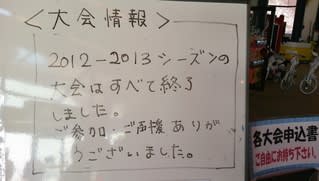 ＜大会情報＞
2012-2013シーズンの
大会はすべて終了
しました。
ご参加・ご声援ありが
とうございました。
各大会申込書
ご自由にお持ち下さい。